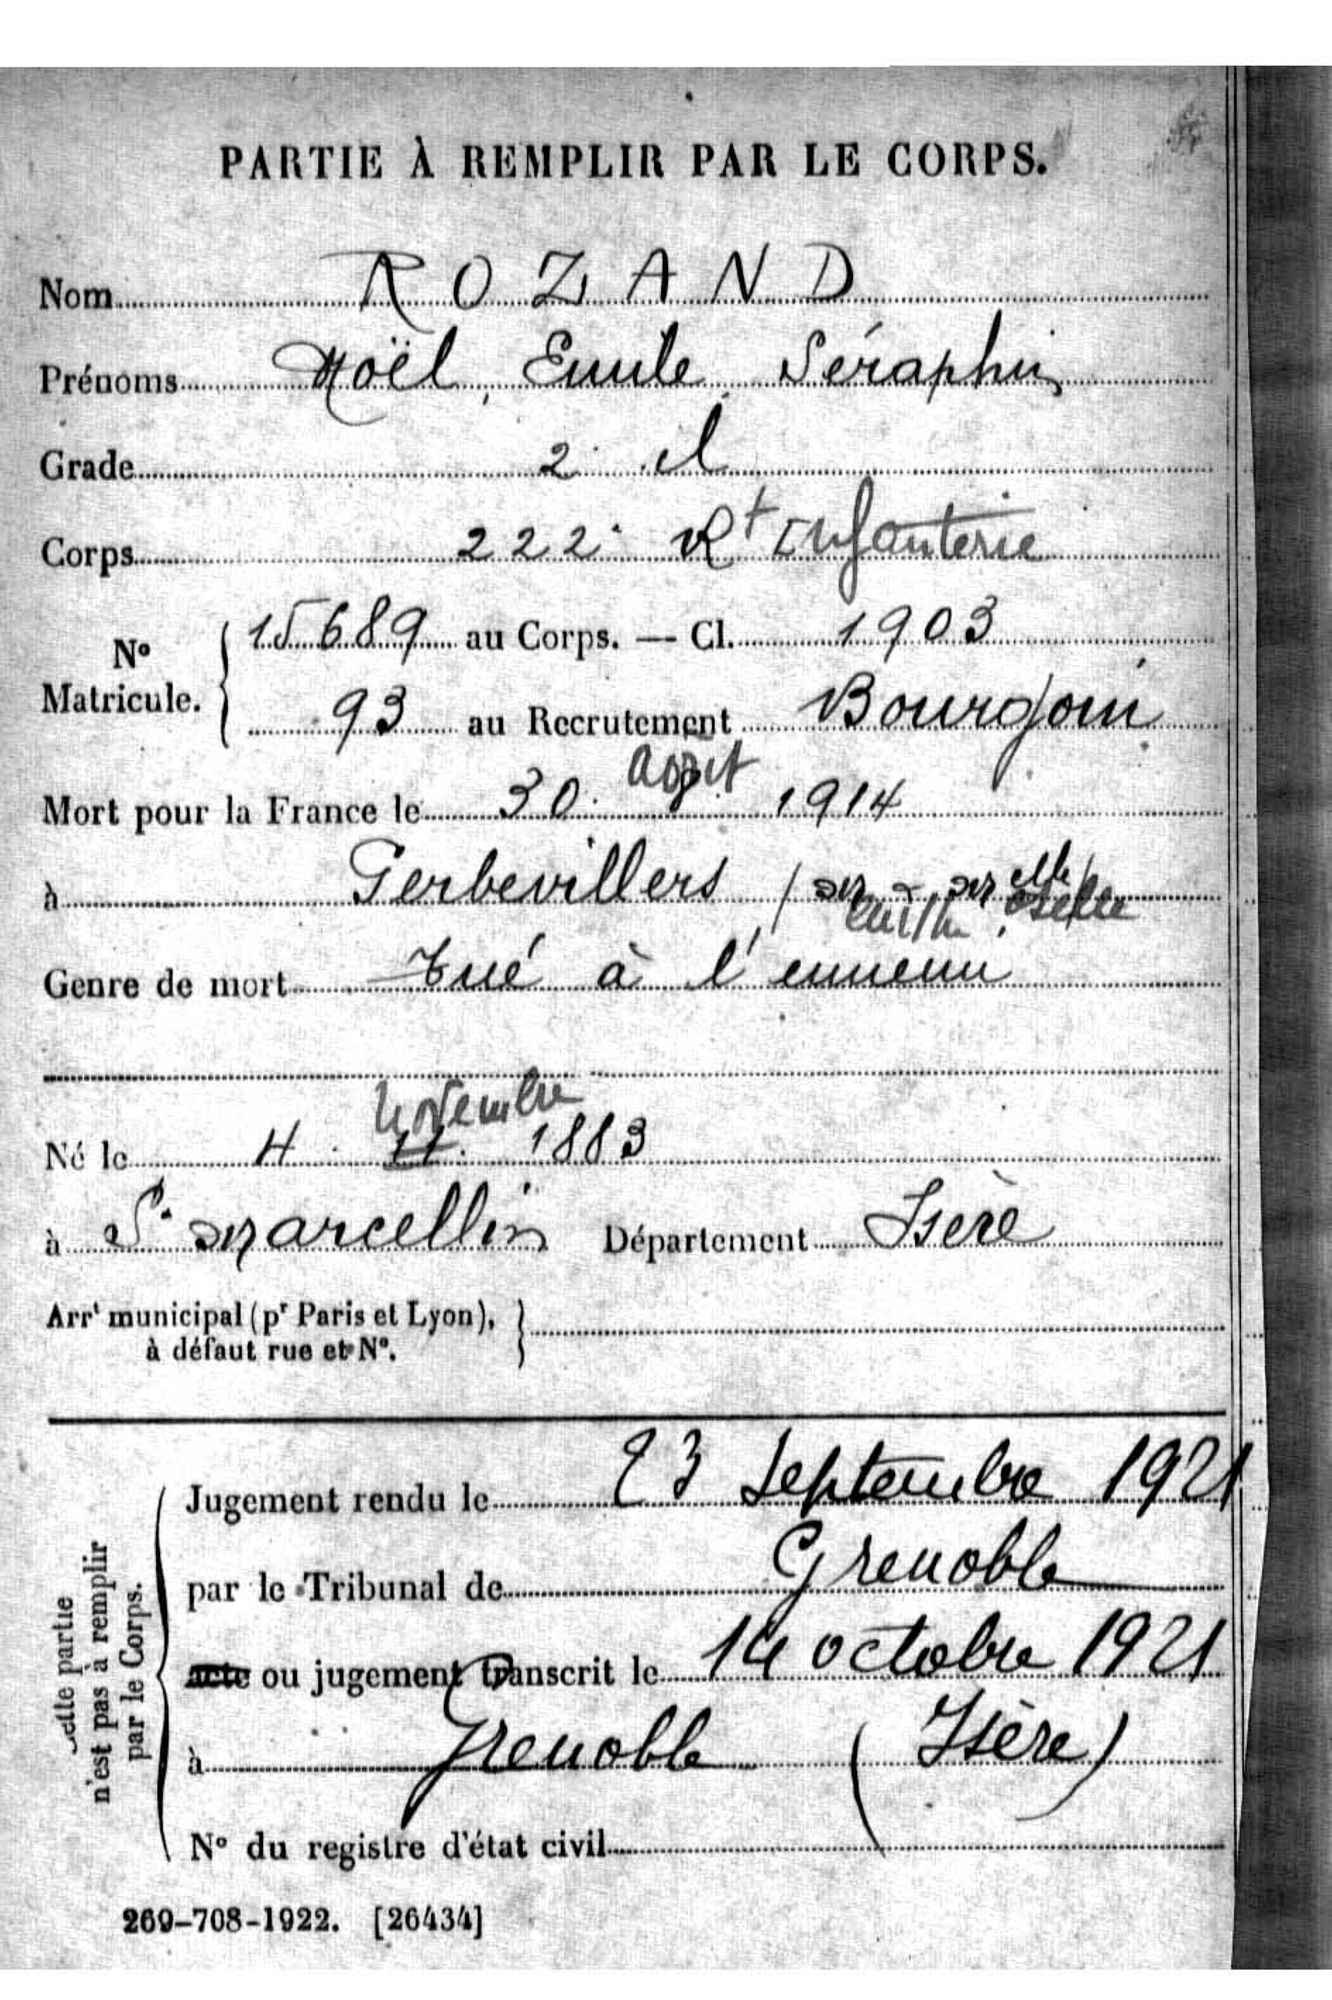 PARTIE À REMPLIR PAR LE CORPS.
Nom ROZAND
Prénoms Noël, Emile, Séraphin
Grade 2e cl
Corps 222e Rt Infanterie
No Matricule. 15689 au Corps. — Cl. 1903
93 au Recrutement Bourgoin
août
Mort pour la France le 30 8 1914
à Gerbevillers (M & Melle)
Genre de mort Tué à l'ennemi
novembre
Né le 4. 11. 1883
à St Marcellin Département Isère
Arrt municipal (pr Paris et Lyon),
à défaut rue et No.
Cette partie
n'est pas à remplir
par le Corps.
Jugement rendu le 23 Septembre 1921
par le Tribunal de Grenoble
acte ou jugement transcrit le 14 octobre 1921
à Grenoble (Isère)
No du registre d'état civil
269-708-1922. [26434]